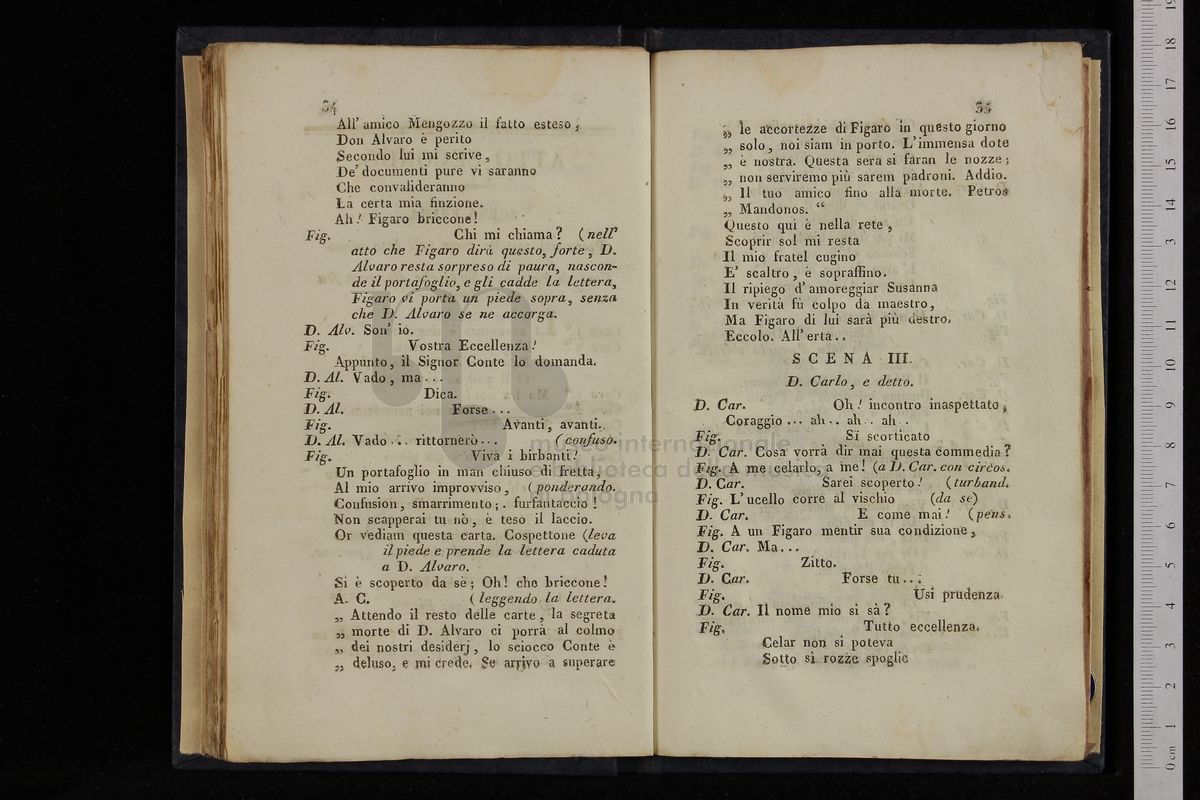 34
All' amico Mengozzo il fatto esteso;
Don Alvaro è perito
Secondo lui mi scrive,
De' documenti pure vi saranno
Che convalideranno
La certa mia finzione.
Ah! Figaro briccone!
Fig. Chi mi chiama? (nell'
atto che Figaro dirà questo, forte, D.
Alvaro resta sorpreso di paura, nascon-
de il portafoglio, e gli cadde la lettera,
Figaro vi porta un piede sopra, senza
che D. Alvaro se ne accorga.
D. Alv. Son' io.
Fig. Vostra Eccellenza!
Appunto, il Signor Conte lo domanda.
D. Al. Vado, ma...
Fig. Dica.
D. Al. Forse...
Fig. Avanti, avanti.
D. Al. Vado... rittornerò... (confuso.
Fig. Viva i birbanti!
Un portafoglio in man chiuso di fretta,
Al mio arrivo improvviso, (ponderando.
Confusion, smarrimento;. furfantaccio!
Non scapperai tu nò, è teso il laccio.
Or vediam questa carta. Cospettone (leva
il piede e prende la lettera caduta
a D. Alvaro.
Si è scoperto da sè; Oh! che briccone!
A. C. (leggendo la lettera.
„ Attendo il resto delle carte, la segreta
„ morte di D. Alvaro ci porrà al colmo
„ dei nostri desiderj, lo sciocco Conte è
„ deluso, e mi crede. Se arrivo a superare
35
„ le accortezze di Figaro in questo giorno
„ solo, noi siam in porto. L'immensa dote
„ è nostra. Questa sera si faran le nozze;
„ non serviremo più sarem padroni. Addio.
„ Il tuo amico fino alla morte. Petros
„ Mandonos. “
Questo qui è nella rete,
Scoprir sol mi resta
Il mio fratel cugino
E' scaltro, è sopraffino.
Il ripiego d'amoreggiar Susanna
In verità fù colpo da maestro,
Ma Figaro di lui sarà più destro.
Eccolo. All'erta..
SCENA III.
D. Carlo, e detto.
D. Car. Oh! incontro inaspettato,
Coraggio... ah.. ah.. ah..
Fig. Si scorticato
D. Car. Cosa vorrà dir mai questa commedia?
Fig. A me celarlo, a me! (a D. Car. con circos.
D. Car. Sarei scoperto! (turband.
Fig. L'ucello corre al vischio (da se)
D. Car. E come mai! (pens.
Fig. A un Figaro mentir sua condizione,
D. Car. Ma...
Fig. Zitto.
D. Car. Forse tu...
Fig. Usi prudenza.
D. Car. Il nome mio si sà?
Fig. Tutto eccellenza.
Celar non si poteva
Sotto sì rozze spoglie
museo internazionale
e biblioteca della musica
di bologna
0 cm 1 2 3 4 5 6 7 8 9 10 11 12 13 14 15 16 17 18 19